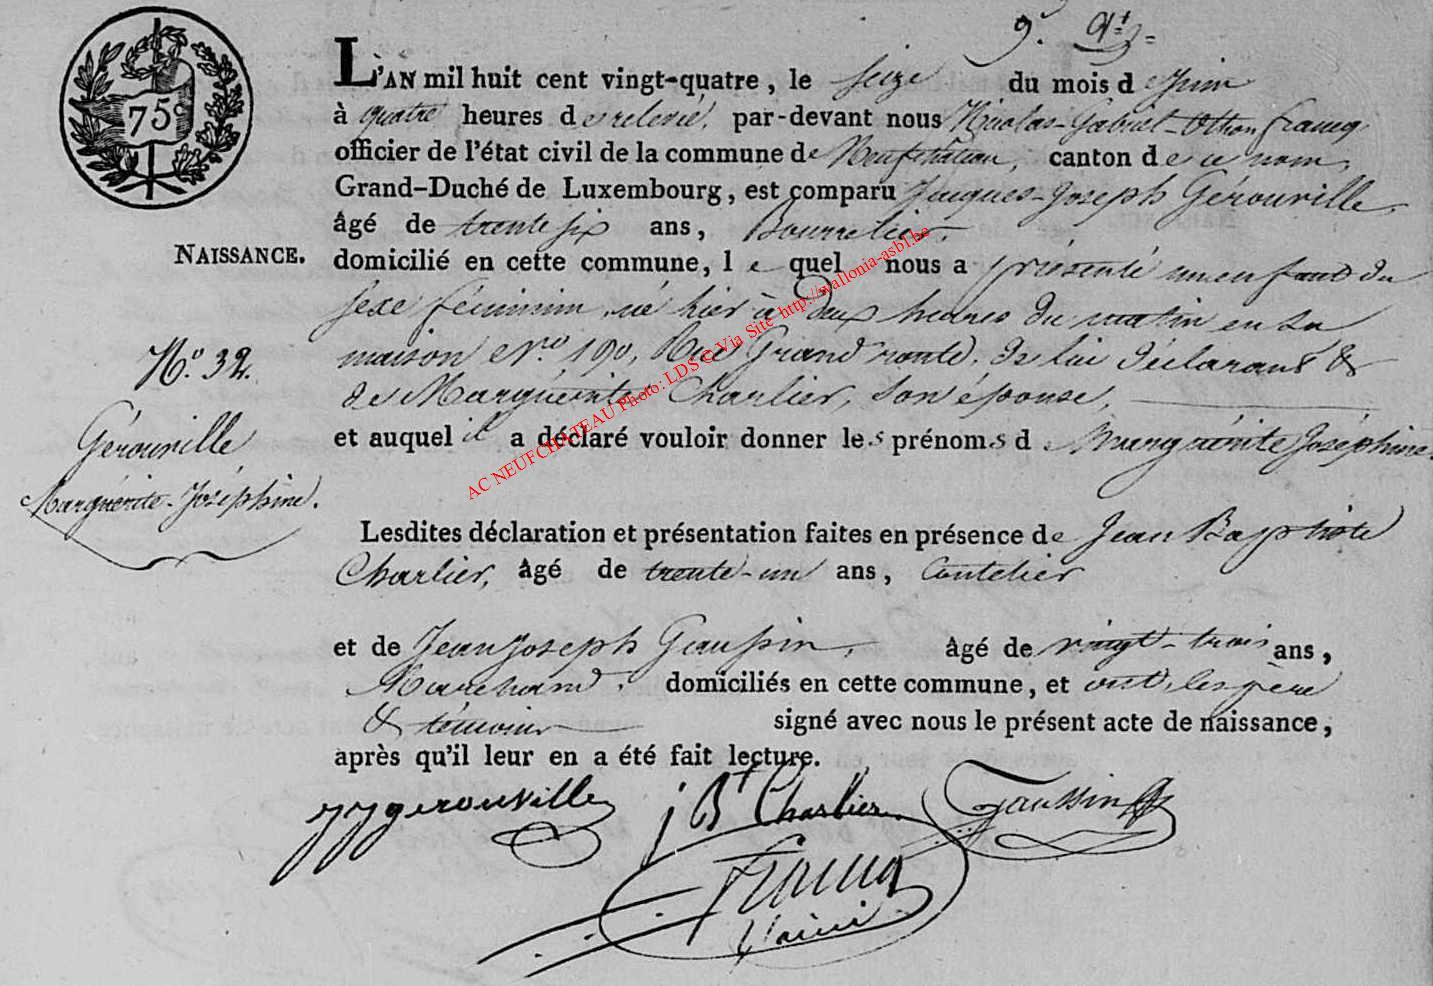 75c
L'AN mil huit cent vingt-quatre, le seize du mois de Juin
à quatre heures de relevée, par-devant nous Nicolas-Gabriel-Othon Francq,
officier de l'état civil de la commune de Neufchateau, canton de ce nom,
Grand-Duché de Luxembourg, est comparu Jacques-Joseph Gérouville,
âgé de trente six ans, Bourrelier,
NAISSANCE.
domicilié en cette commune, le quel nous a présenté un enfant du
sexe féminin, né hier à deux heures du matin en sa
maison No. 190, Rue Grand, de lui déclarant &
de Marguérite Charlier, son épouse,
et auquel il a déclaré vouloir donner les prénoms de Marguérite Joséphine.
No. 32.
Gérouville
Marguérite-Joséphine.
Lesdites déclaration et présentation faites en présence de Jean Baptiste
Charlier, âgé de trente-un ans, Coutelier
et de Jean Joseph Gaussin, âgé de vingt-trois ans,
Marchand, domiciliés en cette commune, et ont, les père
& témoins signé avec nous le présent acte de naissance,
après qu'il leur en a été fait lecture.
JJgerouville
j Bt Charlier
Gaussin
Francq
AC NEUFCHATEAU Photo: LDS © Via Site http://wallonia-asbl.be